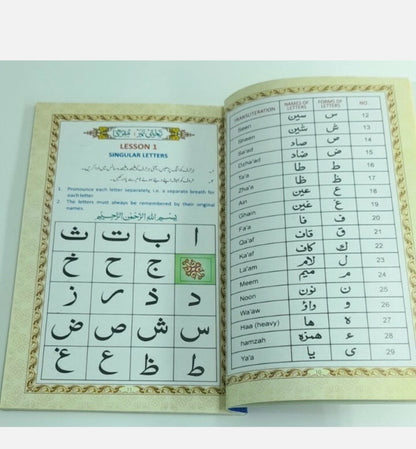 TRANSLITERATION NAMES OF LETTERS FORMS OF LETTERS NO.
Seen سین س 12
Sheen شین ش 13
Sa'ad صاد ص 14
Dzha'ad ضاد ض 15
Ta'a طا ط 16
Zha'a ظا ظ 17
Ain عین ع 18
Ghain غین غ 19
Fa'a فا ف 20
Qa'af قاف ق 21
Ka'af کاف ک 22
La'am لام ل 23
Meem میم م 24
Noon نون ن 25
Wa'aw واؤ و 26
Haa (heavy) ھا ہ 27
hamzah ھمزہ ء 28
Ya'a یا ی 29
10
LESSON 1
SINGULAR LETTERS
1. Pronounce each letter separately, i.e. a separate breath for
each letter.
2. The letters must always be remembered by their original
names.
بِسْمِ اللّٰهِ الرَّحْمٰنِ الرَّحِيْمِ
ا ب ت ث
ج ح خ
د ذ ر ز
س ش ص ض
ط ظ ع غ
11